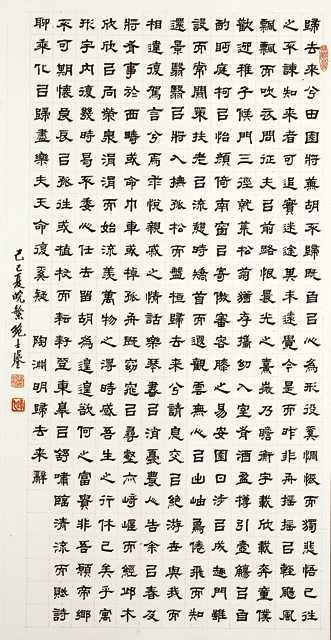 歸去來兮田園將蕪胡不歸既自以心為形役奚惆悵而獨悲悟已往
之不諫知來者可追實迷途其未遠覺今是而昨非舟搖搖以輕颺風
飄飄而吹衣問征夫以前路恨晨光之熹微乃瞻衡宇載欣載奔童僕
歡迎稚子候門三徑就荒松菊猶存攜幼入室有酒盈樽引壺觴以自
酌眄庭柯以怡顏倚南窗以寄傲審容膝之易安園日涉以成趣門雖
設而常關策扶老以流憩時矯首而遐觀雲無心以出岫鳥倦飛而知
還景翳翳以將入撫孤松而盤桓歸去來兮請息交以絕游世與我而
相違復駕言兮焉求悅親戚之情話樂琴書以消憂農人告余以春及
將有事於西疇或命巾車或棹孤舟既窈窕以尋壑亦崎嶇而經邱木
欣欣以向榮泉涓涓而始流羨萬物之得時感吾生之行休已矣乎寓
形宇內復幾時曷不委心任去留胡為遑遑欲何之富貴非吾願帝鄉
不可期懷良辰以孤往或植杖而耘耔登東皋以舒嘯臨清流而賦詩
聊乘化以歸盡樂夫天命復奚疑 陶淵明歸去來辭
己巳夏皖繁